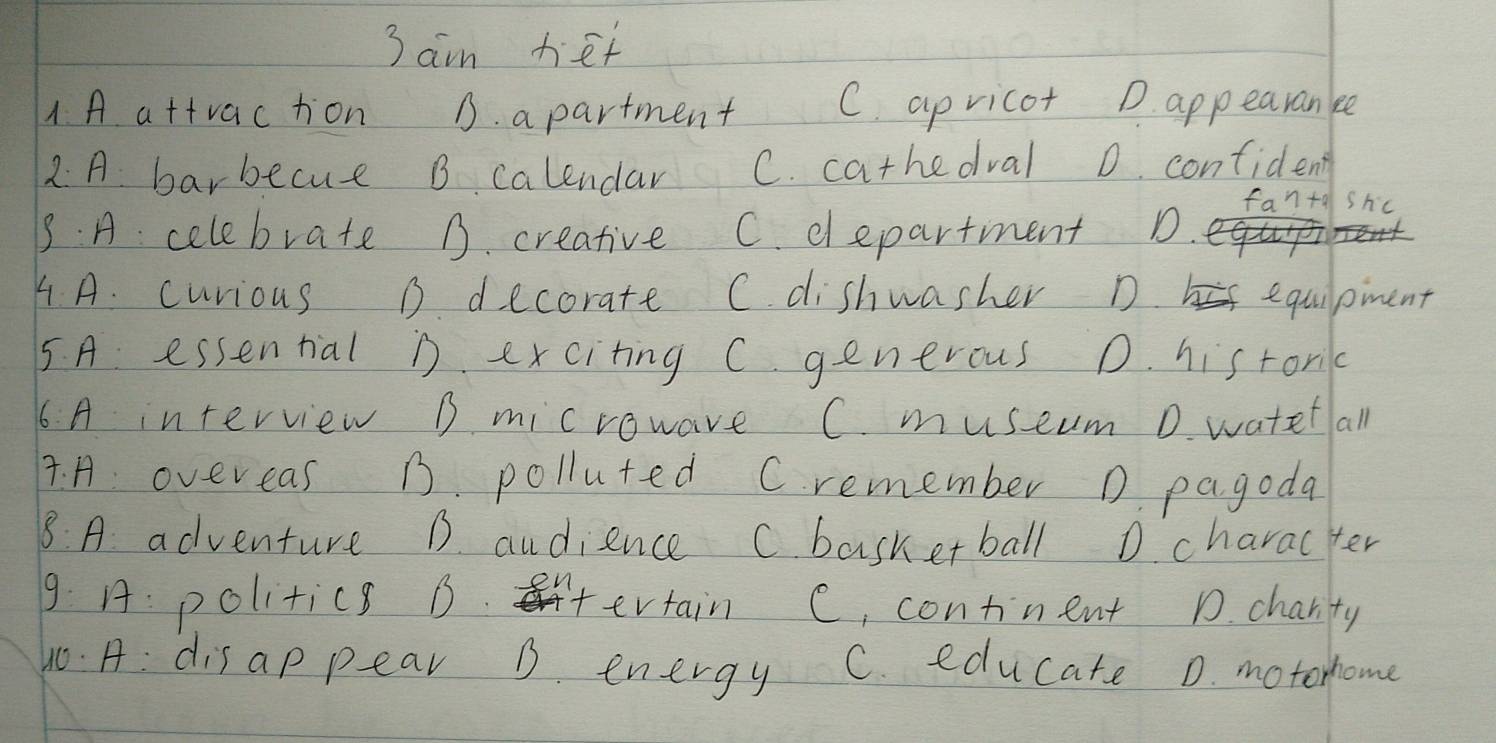 3 âm tiết
1. A attraction B. apartment C. apricot D. appearance
2. A. barbecue B. calendar C. cathedral D. confident
3. A. celebrate B. creative C. department D. fantastic
4. A. curious B decorate C. dishwasher D. equipment
5. A. essential B. exciting C. generous D. historic
6. A interview B microwave C. museum D. waterfall
7. A. overeas B. polluted C. remember D. pagoda
8. A. adventure B. audience C. basketball D. character
9. A. politics B. entertain C, continent D. charity
10. A. disappear B. energy C. educate D. motorhome